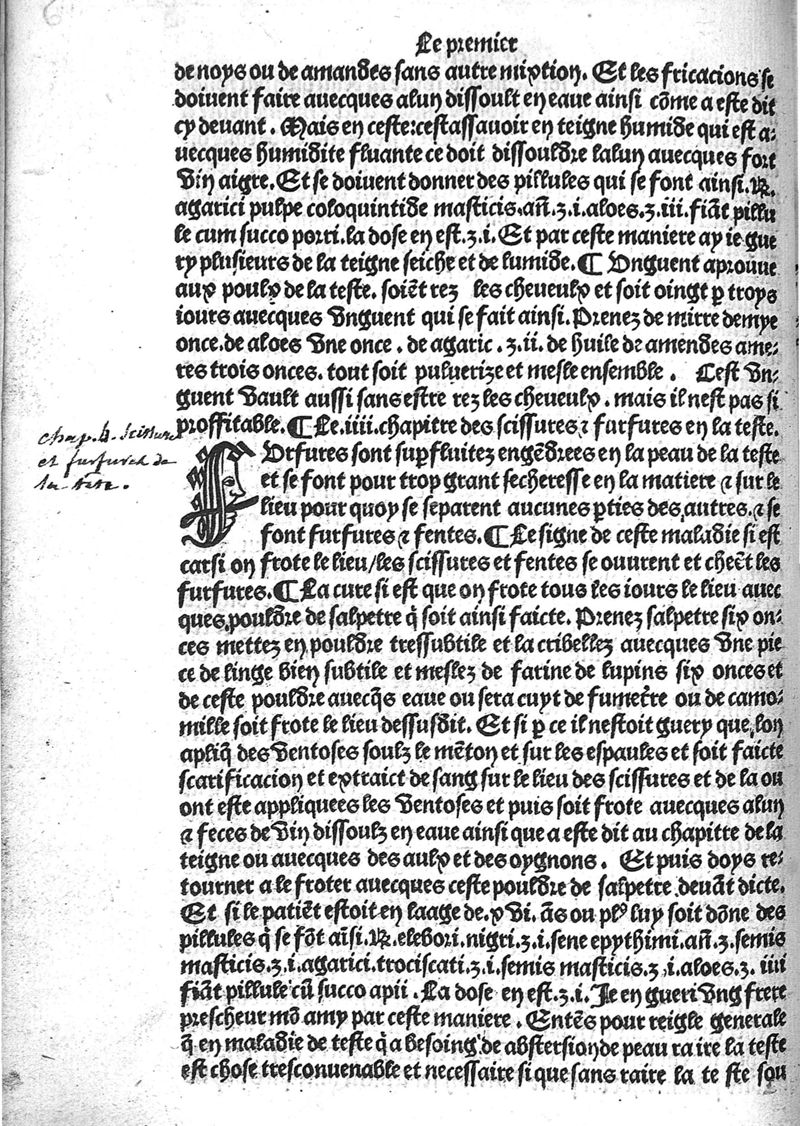 Le premier
de noys ou de amandes sans autre mixtion. Et les fricacions se
doivent faire avecques alun dissoult en eaue ainsi cõme a este dit
cy devant. Mais en ceste: cestassavoir en teigne humide qui est a⸗
vecques humidite fluante ce doit dissouldre lalun avecques fort
vin aigre. Et se doivent donner des pillules qui se font ainsi. ℞.
agarici pulpe coloquintide masticis. añ. ʒ. i. aloes. ʒ. iii. fiãt pillu
le cum succo porri. la dose en est. ʒ. i. Et par ceste maniere ay ie gue
ry plusieurs de la teigne seiche et de lumide. ¶ Unguent aprouve
aux poulx de la teste. soiẽt rez les cheveulx et soit oingt ꝑ troys
iours avecques unguent qui se fait ainsi. Prenez de mirre demye
once. de aloes vne once. de agaric. ʒ. ii. de huile de amendes ame⸗
res trois onces. tout soit pulverize et mesle ensemble. Cest un⸗
guent vault aussi sans estre rez les cheveulx. mais il nest pas si
proffitable. ¶ Le. iiii. chapitre des scissures ⁊ furfures en la teste.
chap. 4. scissures
et furfures de
la teste.
FUrfures sont suꝑfluitez engẽdrees en la peau de la teste
et se font pour trop grant secheresse en la matiere ⁊ sur le
lieu pour quoy se separent aucunes ꝑties des autres. ⁊ se
font furfures ⁊ fentes. ¶ Le signe de ceste maladie si est
car si on frote le lieu/les scissures et fentes se ouvrent et cheẽt les
furfures. ¶ La cure si est que on frote tous les iours le lieu avec
ques pouldre de salpetre q̃ soit ainsi faicte. Prenez salpetre six on⸗
ces mettez en pouldre tressubtile et la cribellez avecques vne pie
ce de linge bien subtile et meslez de farine de lupins six onces et
de ceste pouldre avecq̃s eaue ou sera cuyt de fumetr̃e ou de camo⸗
mille soit frote le lieu dessusdit. Et si ꝑ ce il nestoit guery que lon
apliq̃ des ventoses soulz le mẽton et sur les espaules et soit faicte
scarificacion et extraict de sang sur le lieu des scissures et de la ou
ont este appliquees les ventoses et puis soit frote avecques alun
⁊ feces de vin dissoulz en eaue ainsi que a este dit au chapitre de la
teigne ou avecques des aulx et des oygnons. Et puis doys re⸗
tourner a le froter avecques ceste pouldre de salpetre devãt dicte.
Et si le patiẽt estoit en laage de. xvi. ãs ou plꝰ luy soit dõne des
pillules q̃ se fõt aĩsi. ℞. elebori. nigri. ʒ. i. sene epythimi. añ. ʒ. semis
masticis. ʒ. i. agarici. trociscati. ʒ. i. semis masticis. ʒ. i. aloes. ʒ. iiii
fiãt pillule cũ succo apii. La dose en est. ʒ. i. Je en gueri ung frere
prescheur mõ amy par ceste maniere. Entẽs pour reigle generale
q̃ en maladie de teste q̃ a besoing de abstersion de peau raire la teste
est chose tresconvenable et necessaire si que sans raire la te ste sou